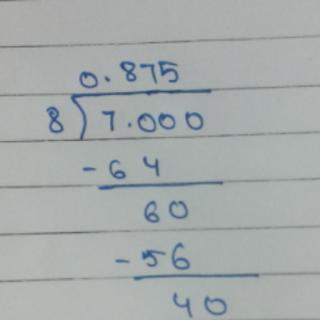 0.875
8)7.000
-64
60
-56
40